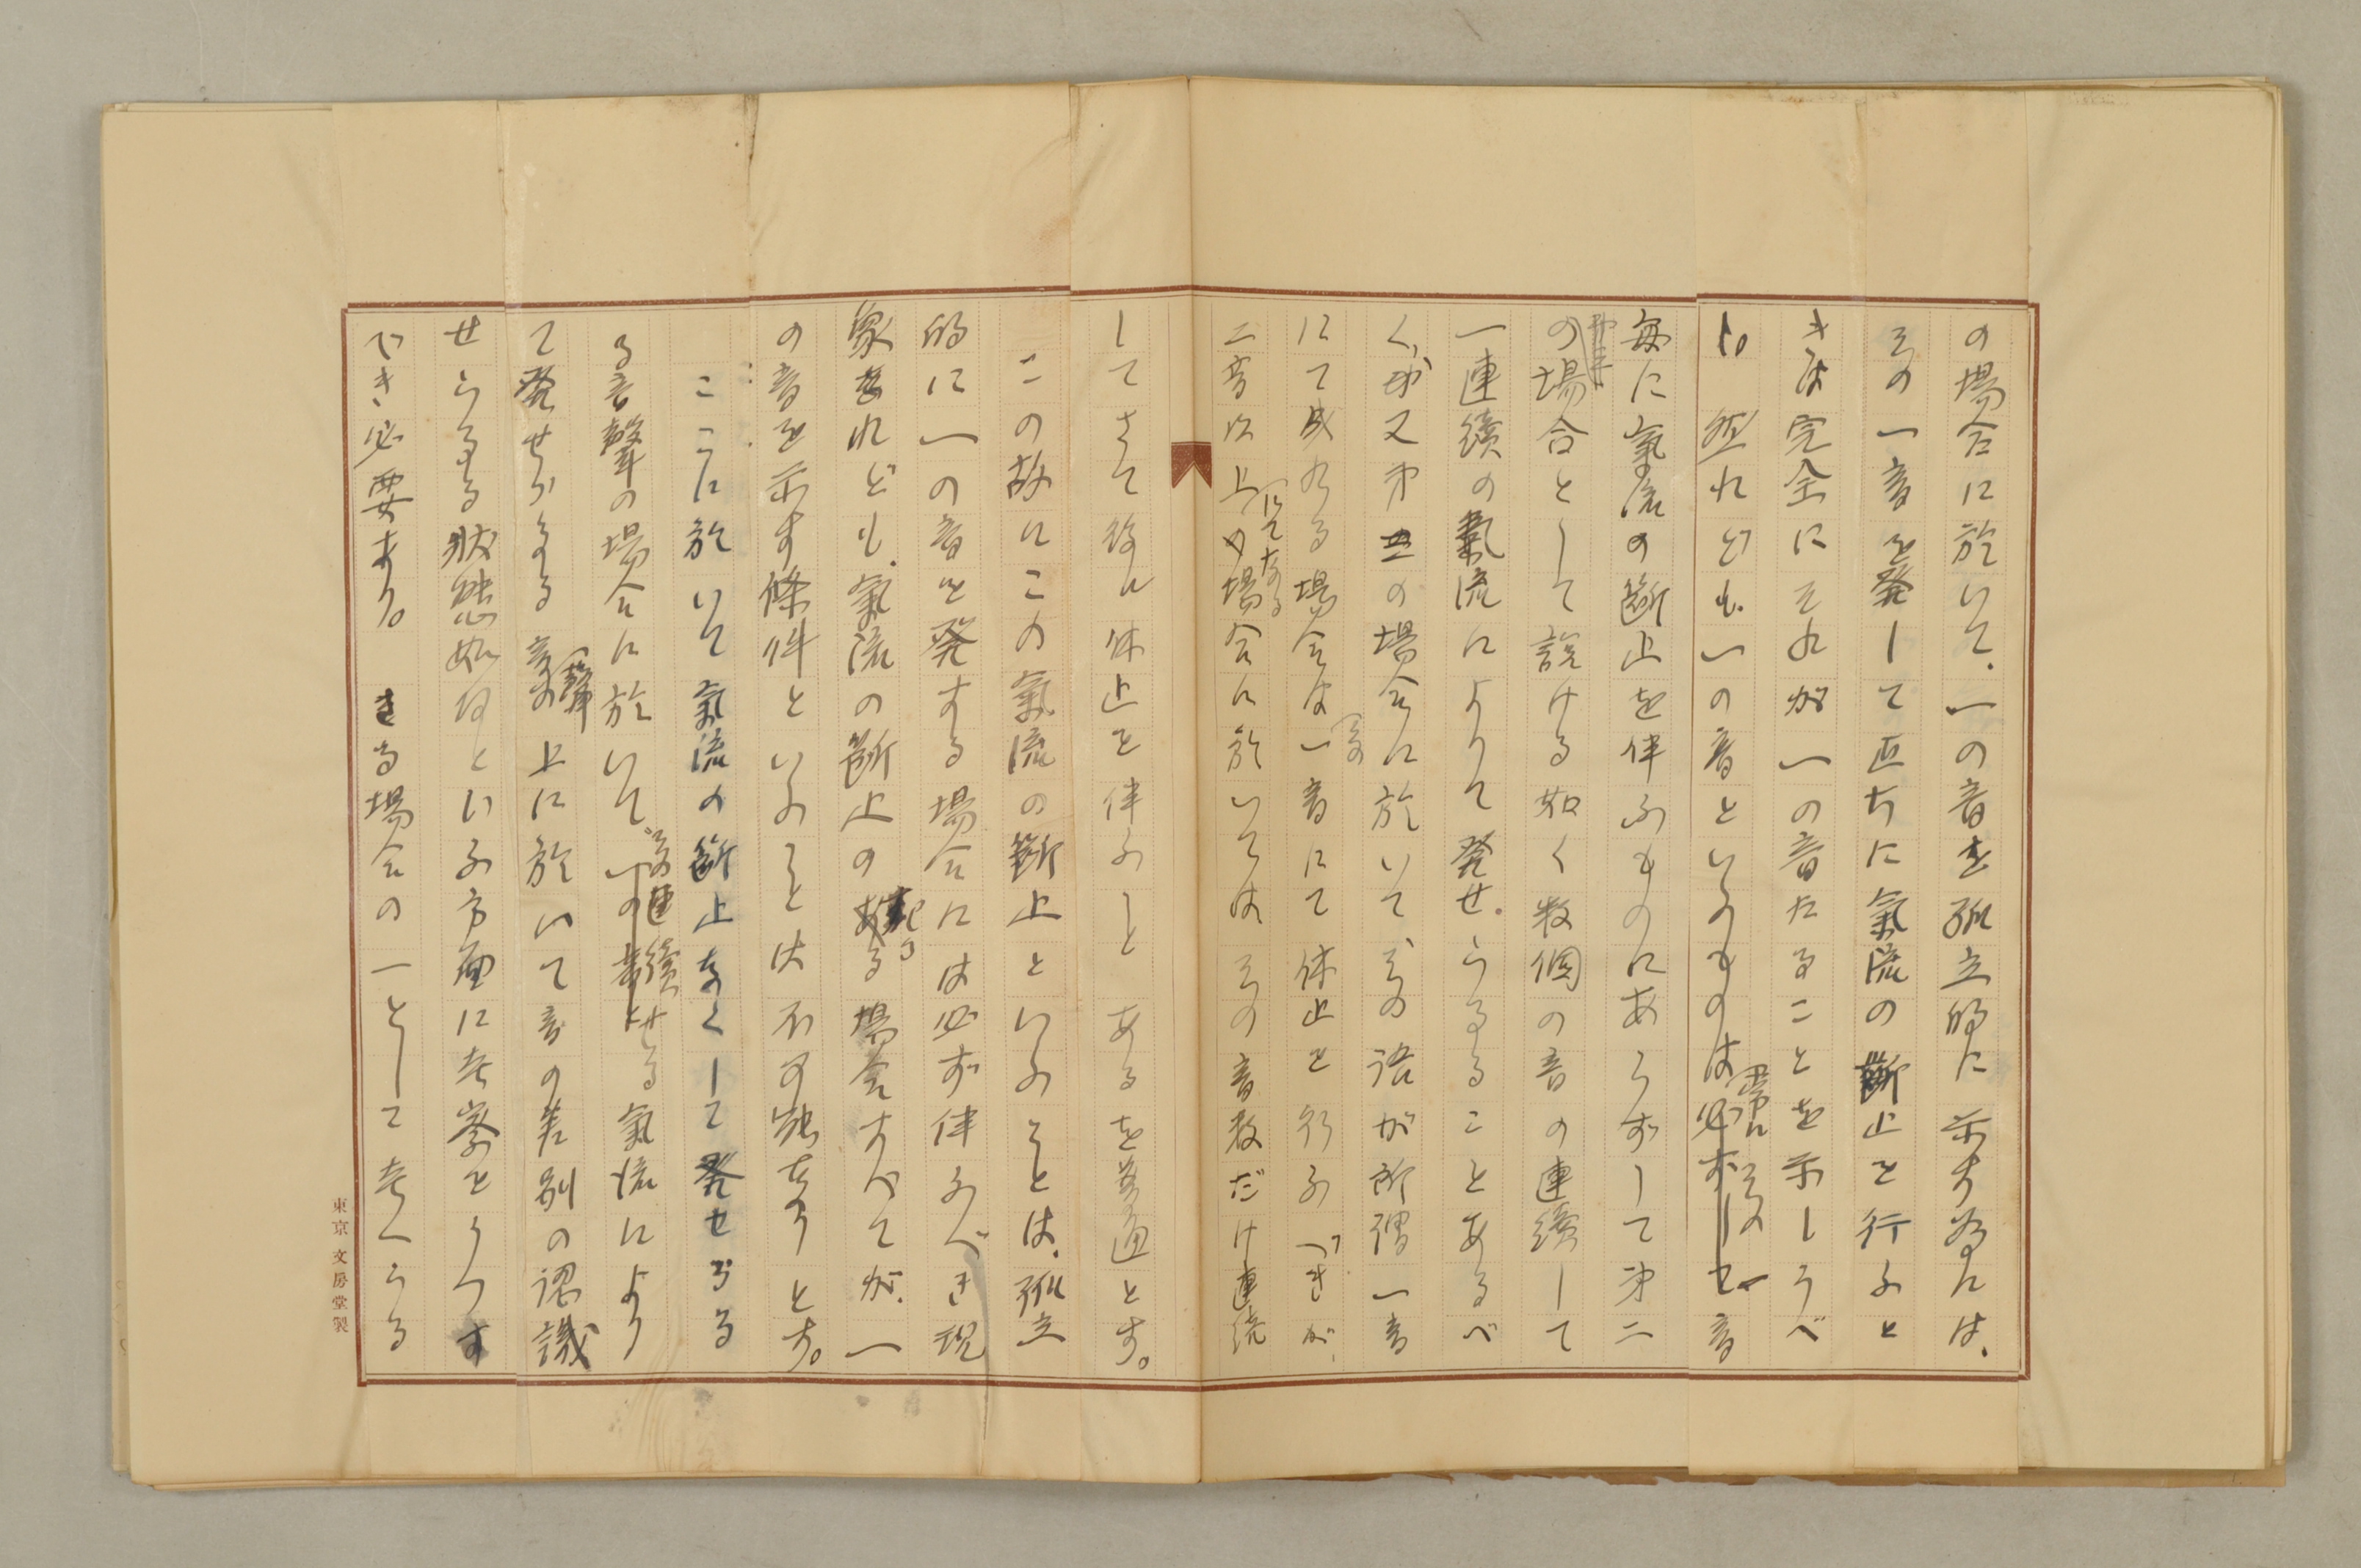 の場合に於いて、一の音を孤立的に示す為には、
その一音を発して直ちに氣流の断止を行ふと
きは完全にそれが一の音たることを示しうべ
し。然れども、一の音といふものは常にその音
毎に氣流の断止を伴ふものにあらずして第二
の場合として説ける如く数個の音の連續して
一連續の氣流によりて発せらるることあるべ
く、又第三の場合に於いて、その語が所謂一音
にて成れる場合は その一音にて休止を行ふべきが、
二音以上にてなる場合に於いては その音数だけ連続
して さて後に休止を伴ふこと あるを普通とす。
この故にこの氣流の断止といふことは、孤立
的に一の音を発する場合には必ず伴ふべき現
象なれども、氣流の断止の起る場合すべてが、一
の音を示す條件といふことは不可能なりとす。
ここに於いて氣流の断止なくして発せらるる
る音聲の場合に於いて、その連續せる氣流により
て発せらるる音聲の上に於いて音の差別の認識
せらるる状態如何といふ方面に考察をうつす
べき必要あり。 さる場合の一として考へうる
東京 文房堂製